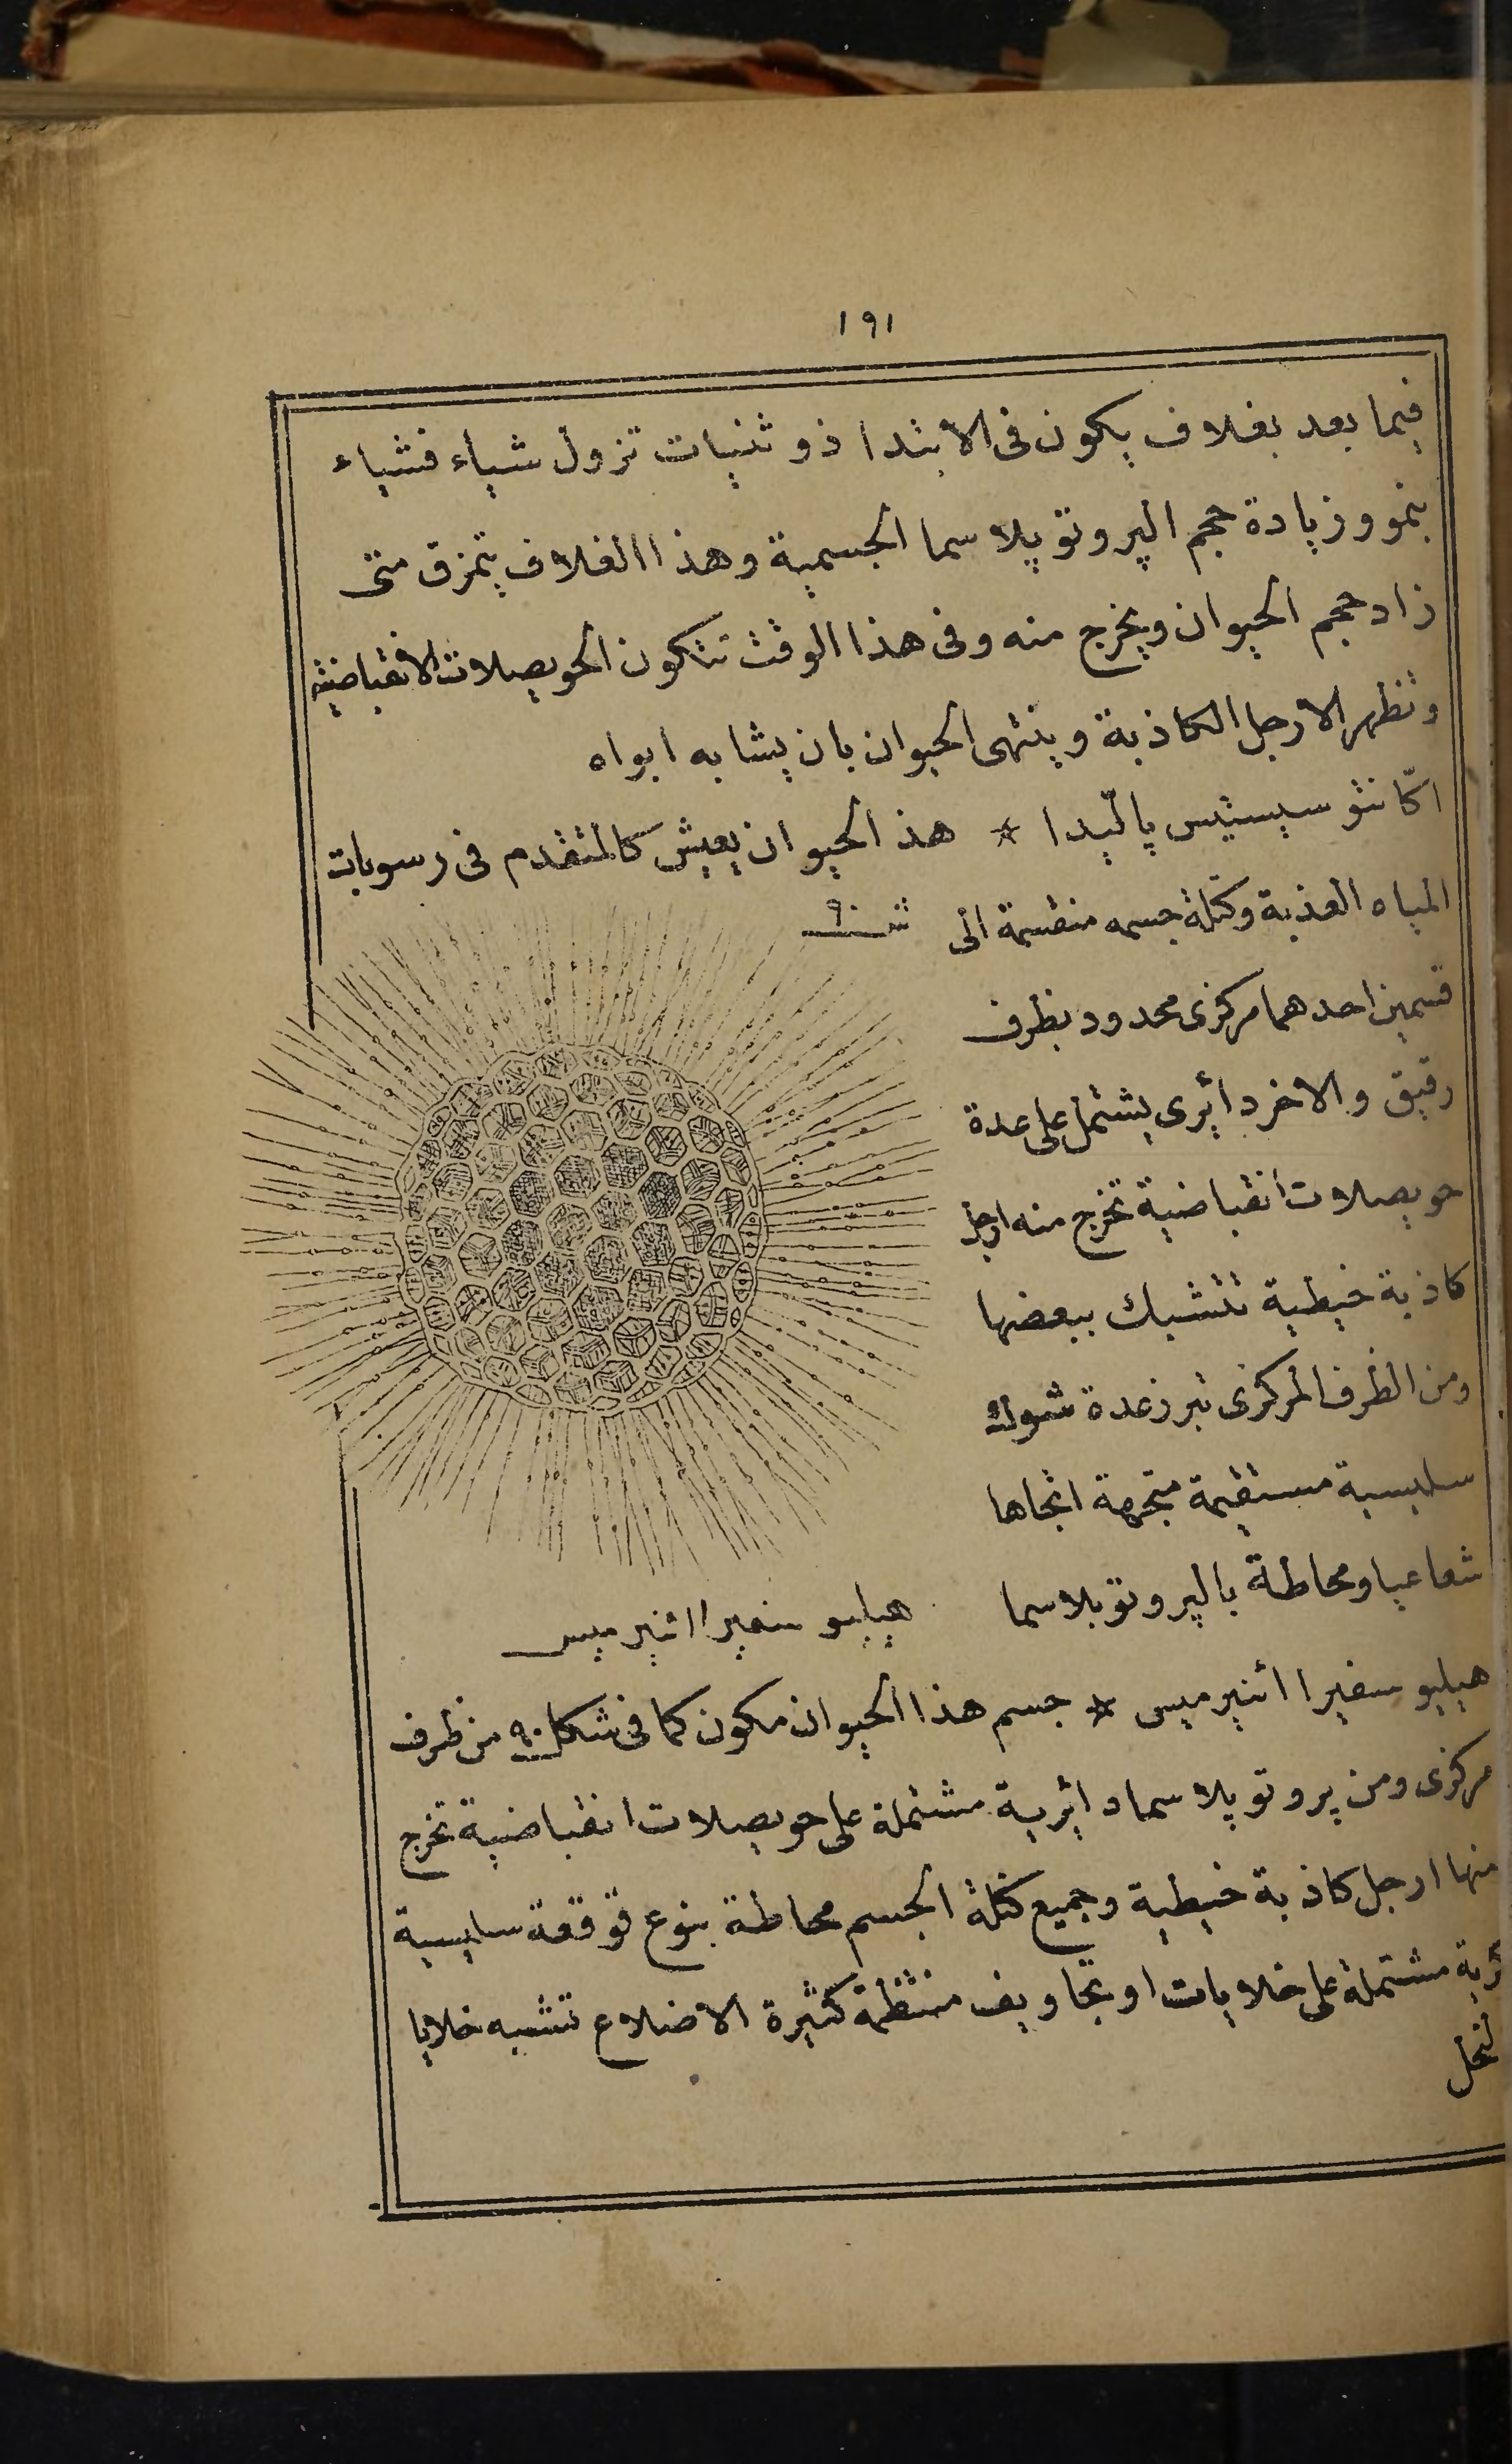 ١٩١
فيما بعد بغلاف يكون فى الابتدا ذو ثنيات تزول شياء فشياء
بنمو وزيادة حجم الپروتوپلاسما الجسمية وهذا الغلاف يتمزق متى
زاد حجم الحيوان ويخرج منه وفى هذا الوقت تتكون الحويصلات الانقباضية
وتظهر الارجل الكاذبة وينتهى الحيوان بان يشابه ابواه
اكّانتو سيستيس پالّيدا * هذ الحيوان يعيش كالمتقدم فى رسوبات
المياه العذبة وكتلة جسمه منقسمة الى
شـ ٩٠
قسمين احدهما مركزى محدود بظرف
رقيق والاخر دايرى يشتمل على عدة
حويصلات انقباضية تخرج منه ارجل
كاذبة خيطية تتشبك ببعضها
ومن الظرف المركزى تبرز عدة شوك
سليسية مستقيمة متجهة اتجاها
شعاعيا ومحاطة بالپروتوبلاسما
هيليو سفيرا اتنيرميس
هيليو سفيرا اتنيرميس * جسم هذا الحيوان مكون كما فى شكل ٩٠ من ظرف
مركزى ومن پروتوپلاسما دايرية مشتملة على حويصلات انقباضية تخرج
منها ارجل كاذبة خيطية وجميع كتلة الجسم محاطة بنوع قوقعة سليسية
ئرية مشتملة على خلايات او تجاويف منتظمة كثيرة الاضلاع تشبه خلايا
لنحل